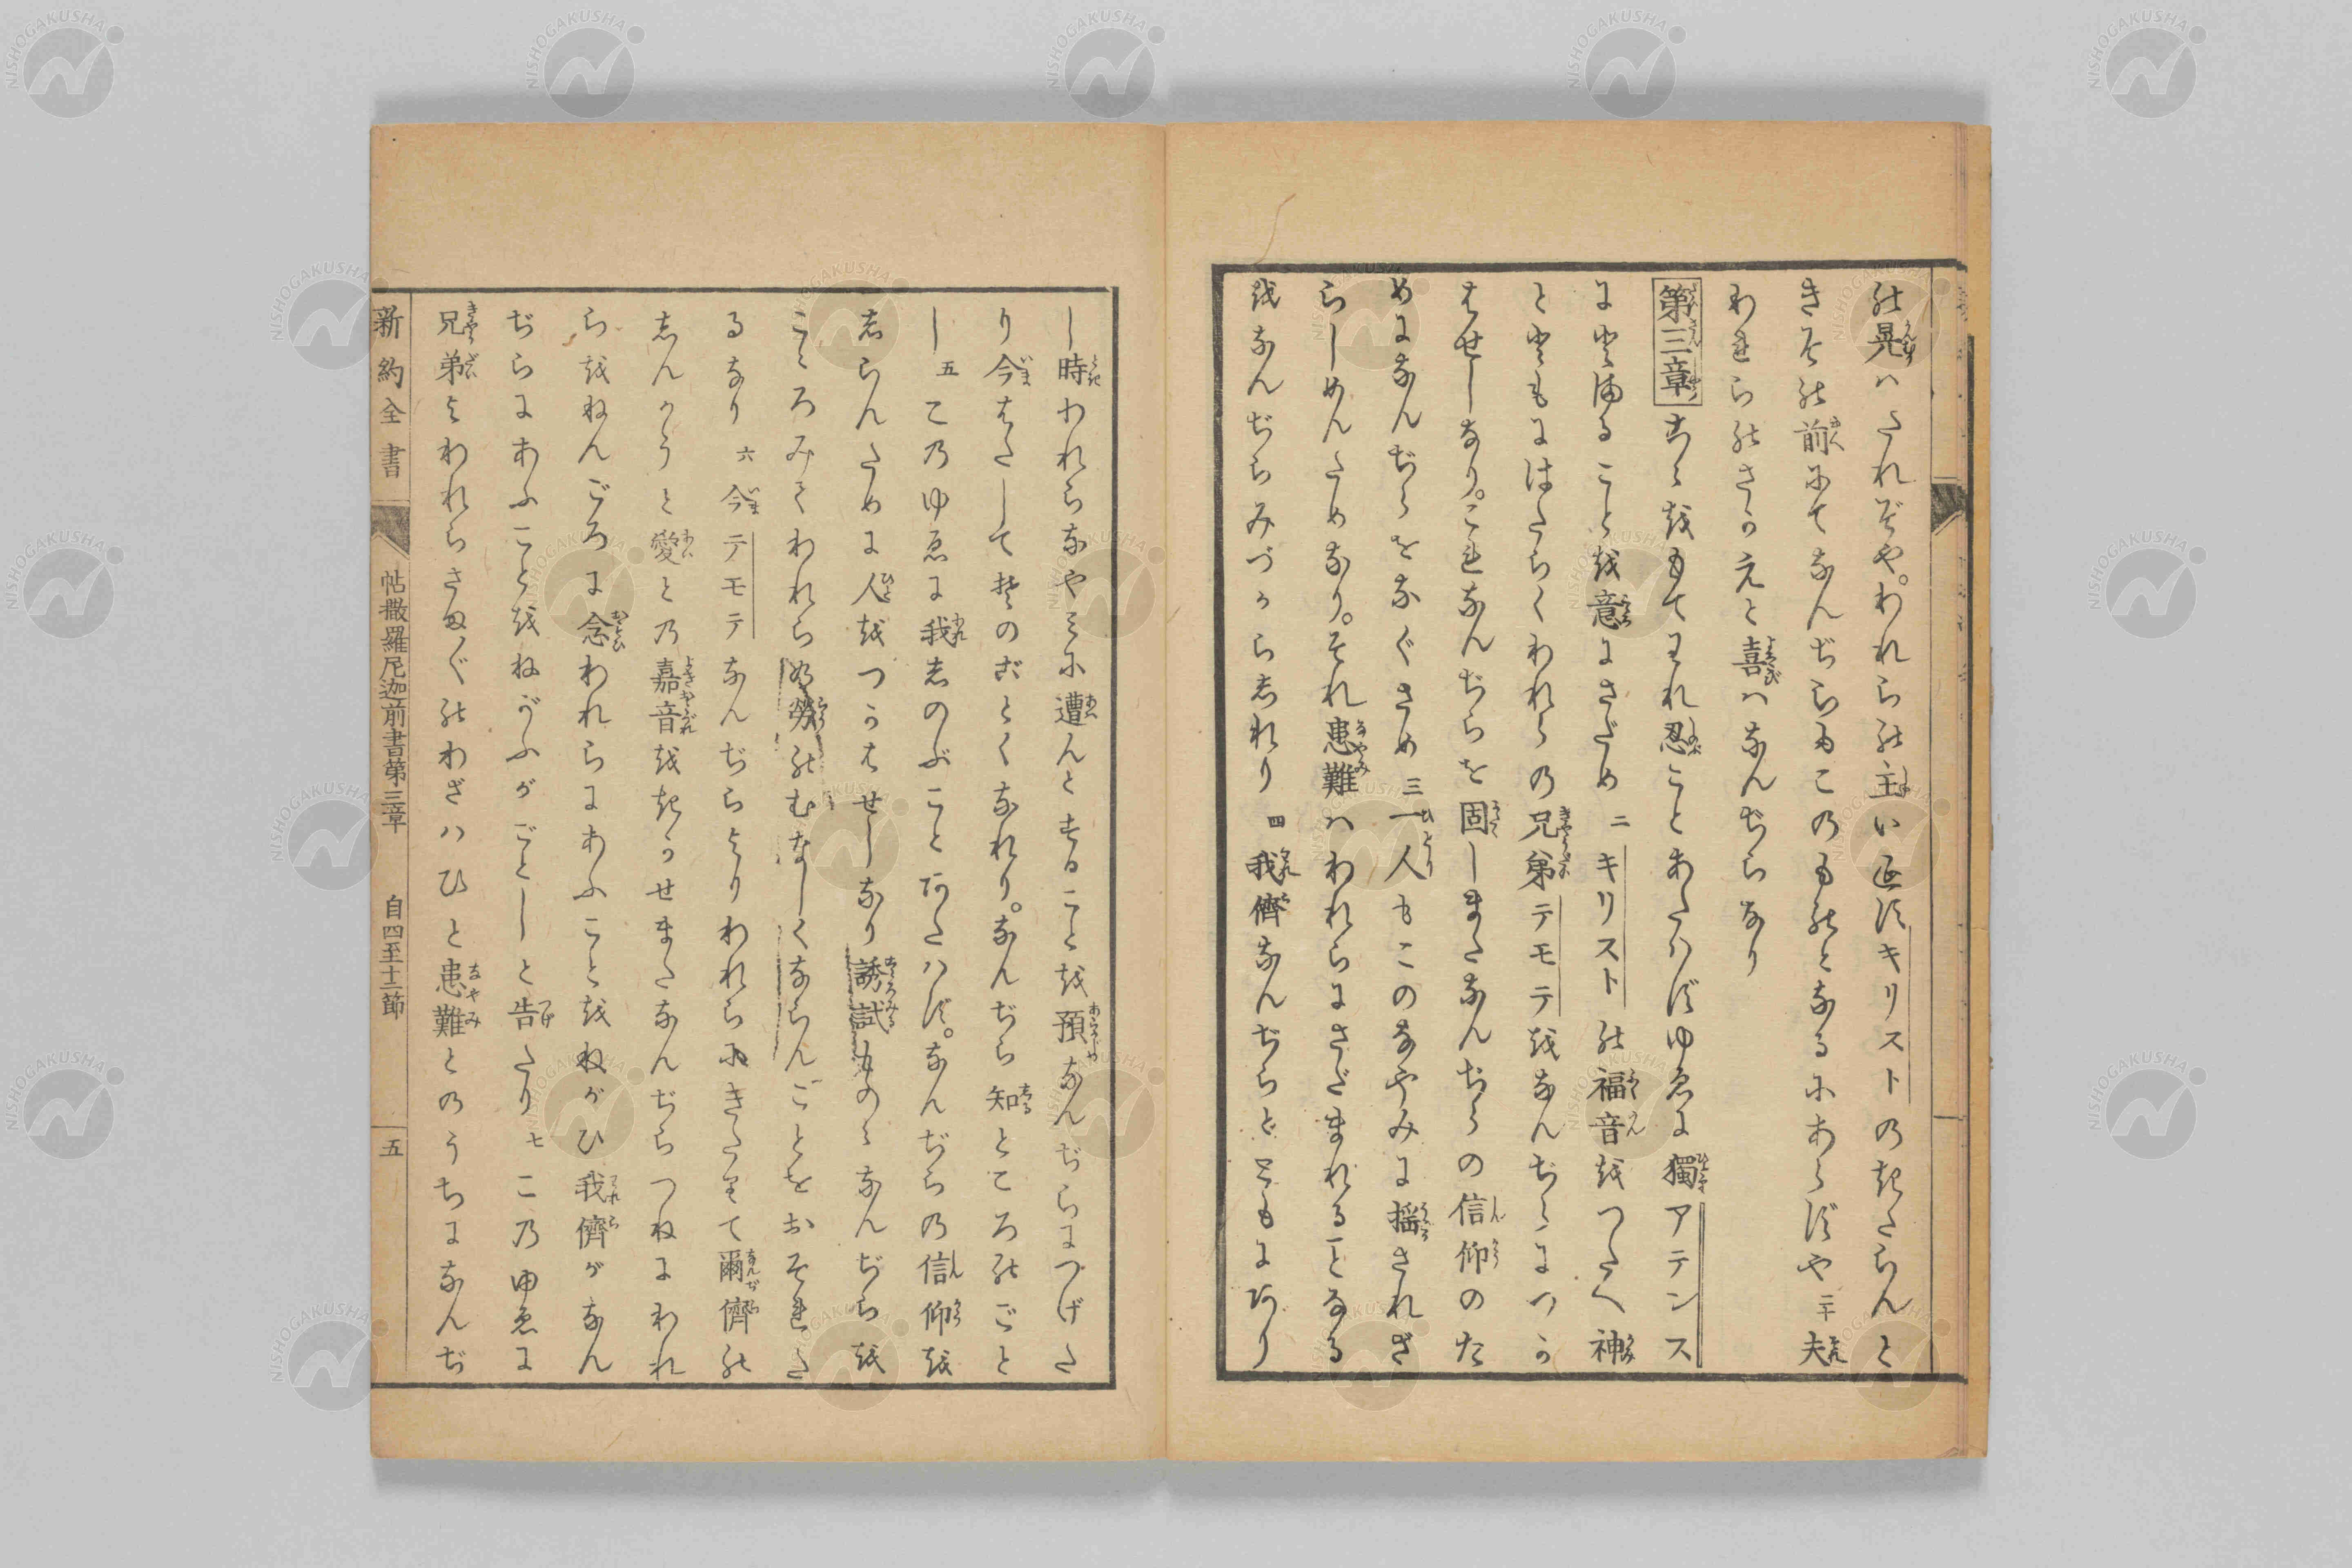 の晃ハたれぞや。われらの主いエスキリストのきたらんと
きその前にて なんぢらも このものとなるにあらずや 二十 夫
われらのさかえと喜ハなんぢらなり
第三章 こゝをもてわれ忍ことあたハずゆゑに獨アテンス
にとゞまることを意にさだめ 二 キリストの福音をつたへ神
とともにはたらくわれらの兄弟テモテをなんぢらにつか
はせしなり。これなんぢらを固しまたなんぢらの信仰のた
めになんぢらをなぐさめ 三 一人もこのなやみに揺されざ
らしめんためなり。それ患難ハわれらにさだまれることなる
をなんぢらみづからしれり 四 我儕なんぢらとともにあり
し時われらなやみに遭んとすることを預なんぢらにつげた
り今はたして其のごとくなれり。なんぢら知ところのごと
し 五 この ゆゑに我しのぶことあたハず。なんぢらの信仰を
しらんために人をつかはせしなり誘試ものゝなんぢらを
こゝろみてわれらの勞のむなしくならんことをおそれた
るなり 六 今テモテなんぢらよりわれらにきたりて爾儕の
しんかうと愛との嘉音をきかせまたなんぢらつねにわれ
らをねんごろに念われらにあふことをねがひ我儕がなん
ぢらにあふことをねがふがごとしと告たり 七 このゆゑに
兄弟よわれらさま〴〵のわざハひと患難とのうちになんぢ
新約全書 帖撒羅尼迦前書第三章 自四至十二節 五
NISHOGAKUSHA